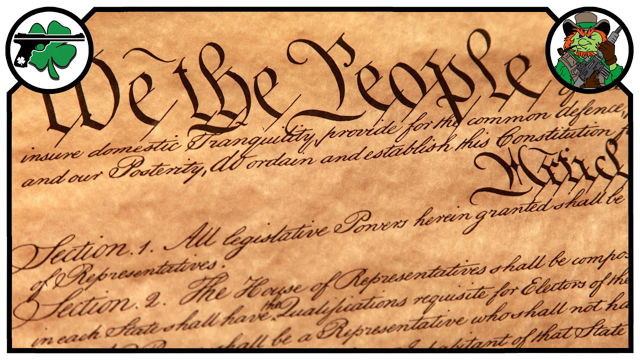 We the People
insure domestic Tranquility, provide for the common defence,
and our Posterity, do ordain and establish this Constitution
Articl
Section. 1. All legislative Powers herein granted shall be
of Representatives.
Section. 2. The House of Representatives shall be compo
in each State shall have the Qualifications requisite for Electors of the
shall be a Representative who shall not ha
habitant of that State